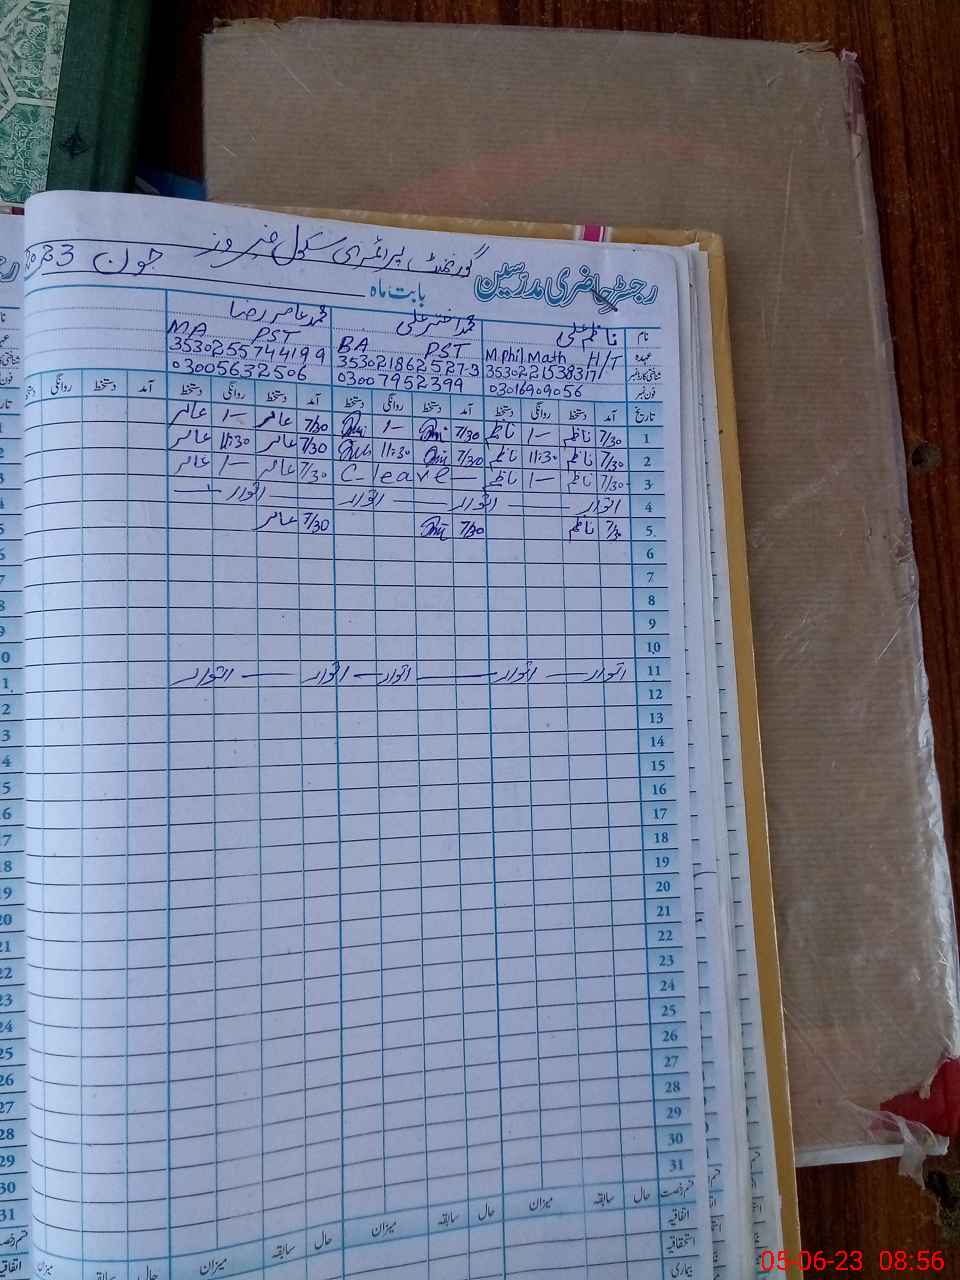 رجسٹر حاضری مدرسین گورنمنٹ پرائمری سکول فیروز
بابت ماہ جون 2023
نام ناظم علی محمد اختر علی محمد عامر رضا
عہدہ M.Phil Math H/T BA PST MA PST
3530221538317 3530218625279 3530255744199
فون نمبر 03016909056 03007952399 03005632506
تاریخ آمد دستخط روانگی دستخط آمد دستخط روانگی دستخط آمد دستخط روانگی دستخط آمد دستخط روانگی دستخط
1 7/30 ناظم 1- ناظم 7/30 1- 7/30 عامر 1- عامر
2 7/30 ناظم 11:30 ناظم 7/30 11:30 7/30 عامر 11:30 عامر
3 7/30 ناظم 1- ناظم C-leave 7/30 عامر 1- عامر
4 اتوار اتوار اتوار اتوار
5 7/30 ناظم 7/30 7/30 عامر
6
7
8
9
10
11 اتوار اتوار اتوار اتوار اتوار
12
13
14
15
16
17
18
19
20
21
22
23
24
25
26
27
28
29
30
31
قسم رخصت حال سابقہ میزان حال سابقہ میزان حال سابقہ میزان حال سابقہ میزان
اتفاقیہ
استحقاقیہ
بیماری
05-06-23 08:56